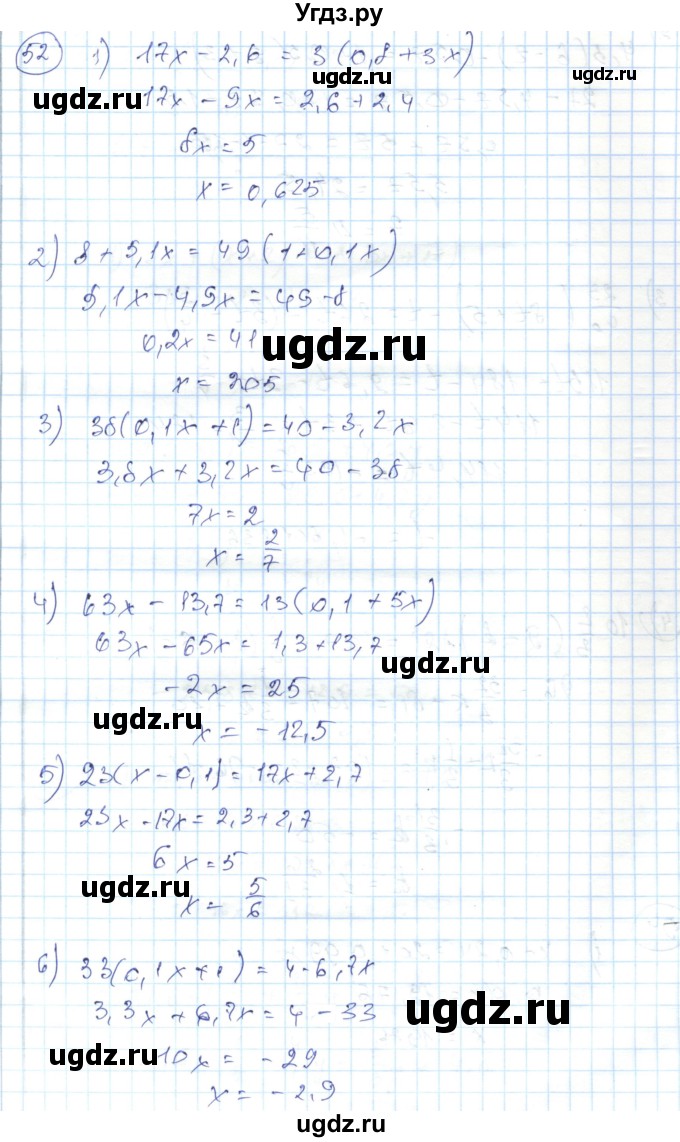 Угдз.ру
52 1) 17x - 2,6 = 3(0,8 + 3x)
ugdz.ru ugdz.ru ugdz.ru
17x - 9x = 2,6 + 2,4
8x = 5
x = 0,625
2) 8 + 5,1x = 49(1+0,1x)
5,1x - 4,9x = 49-8
0,2x = 41
ugdz.ru
x = 205
3) 38(0,1x + 1) = 40 - 3,2x
3,8x + 3,2x = 40 - 38
ugdz.ru ugdz.ru
7x = 2
x = 2/7
4) 63x - 13,7 = 13(0,1 + 5x)
63x - 65x = 1,3+13,7
ugdz.ru
-2x = 25
ugdz.ru
x = -12,5
5) 23(x - 0,1) = 17x + 2,7
23x - 17x = 2,3+2,7
6x = 5
ugdz.ru
x = 5/6
6) 33(0,1x+1) = 4-6,7x
3,3x + 6,7x = 4 - 33
ugdz.ru
10x = -29
ugdz.ru
x = -2,9
ugdz.ru